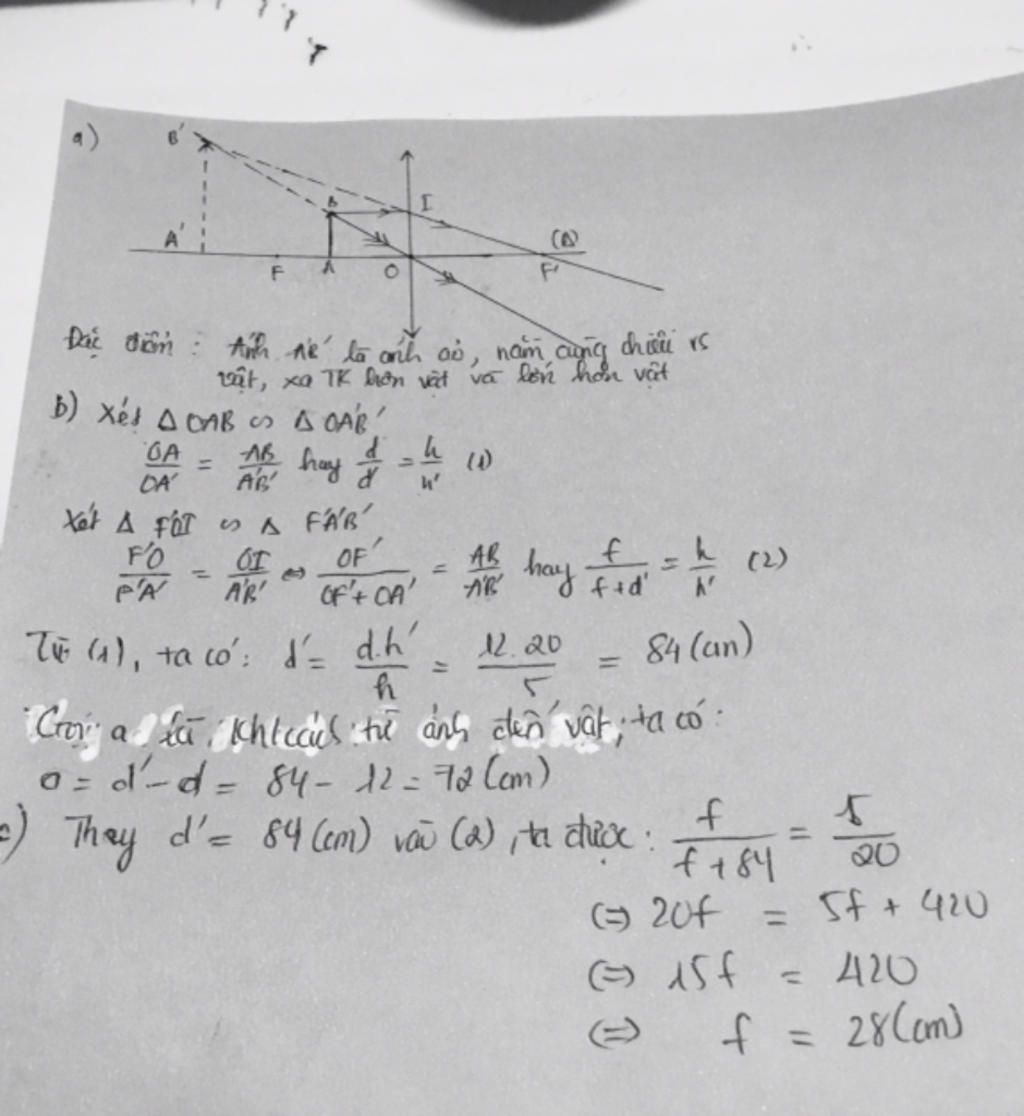 a)
B'
B
I
A'
(Δ)
F
A
O
F'
Đặc điểm : Ảnh A'B' là ảnh ảo, nằm cùng chiều vs
vật, xa TK hơn vật và lớn hơn vật
b) Xét Δ OAB ∽ Δ OA'B'
OA/OA' = AB/A'B' hay d/d' = h/h' (1)
Xét Δ F'OI ∽ Δ F'A'B'
F'O/F'A' = OI/A'B' ⇔ OF'/OF'+OA' = AB/A'B' hay f/f+d' = h/h' (2)
Từ (1), ta có: d' = d.h'/h = 12.20/5 = 84 (cm)
Gọi a là khcách từ ảnh đến vật; ta có:
a = d' - d = 84 - 12 = 72 (cm)
c) Thay d' = 84 (cm) vào (2), ta được: f/f+84 = 5/20
(=) 20f = 5f + 420
(=) 15f = 420
(=) f = 28 (cm)